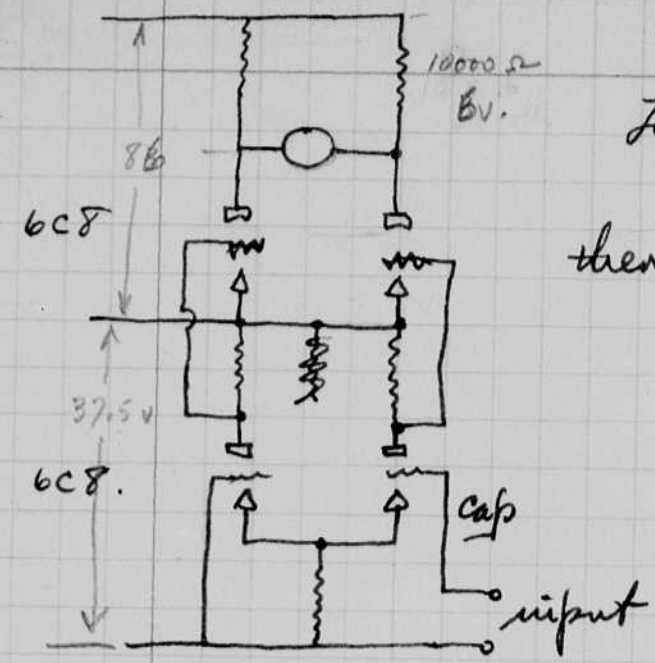 10000 Ω
6v.
6C8
then
37.5 v
6C8.
cap
input